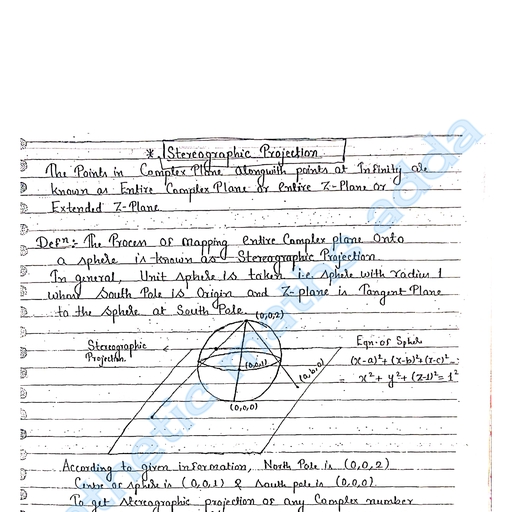 * Stereographic Projection
The Points in Complex Plane alongwith points at Infinity are
known as Entire Complex Plane or entire Z-Plane or
Extended Z-Plane
Defⁿ:- The Process of Mapping entire Complex plane onto
a sphere is known as Stereographic Projection
In general, Unit sphere is taken i.e. sphere with radius 1
whose South Pole is Origin and Z-plane is Tangent Plane
to the sphere at South Pole.
(0,0,2)
Stereographic
Projection.
Eqn. of Sphere
(x-a)²+(x-b)²+(z-c)²
= x²+y²+(z-1)²=1²
(0,0,1)
(a,b,0)
(0,0,0)
According to given information, North Pole is (0,0,2)
Centre of sphere is (0,0,1) & south pole is (0,0,0)
To get stereographic projection of any Complex number
maths adda